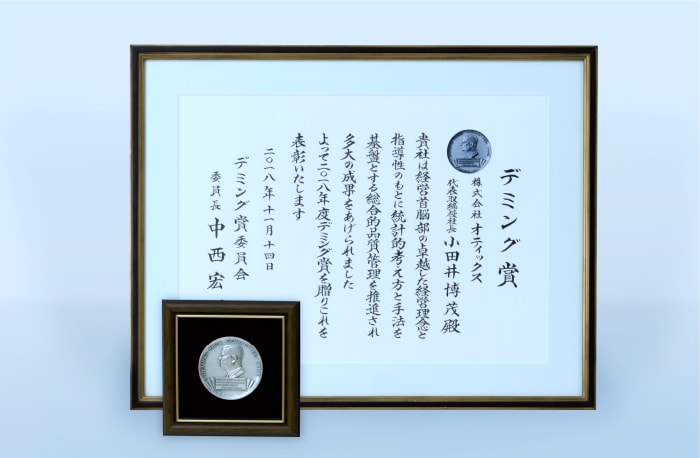 デミング賞
株式会社 オティックス
代表取締役社長 小田井博茂殿
貴社は経営首脳部の卓越した経営理念と
指導性のもとに統計的考え方と手法を
基盤とする総合的品質管理を推進され
多大の成果をあげられました
よって二〇一八年度デミング賞を贈りこれを
表彰いたします
二〇一八年十一月十四日
デミング賞委員会
委員長 中西宏